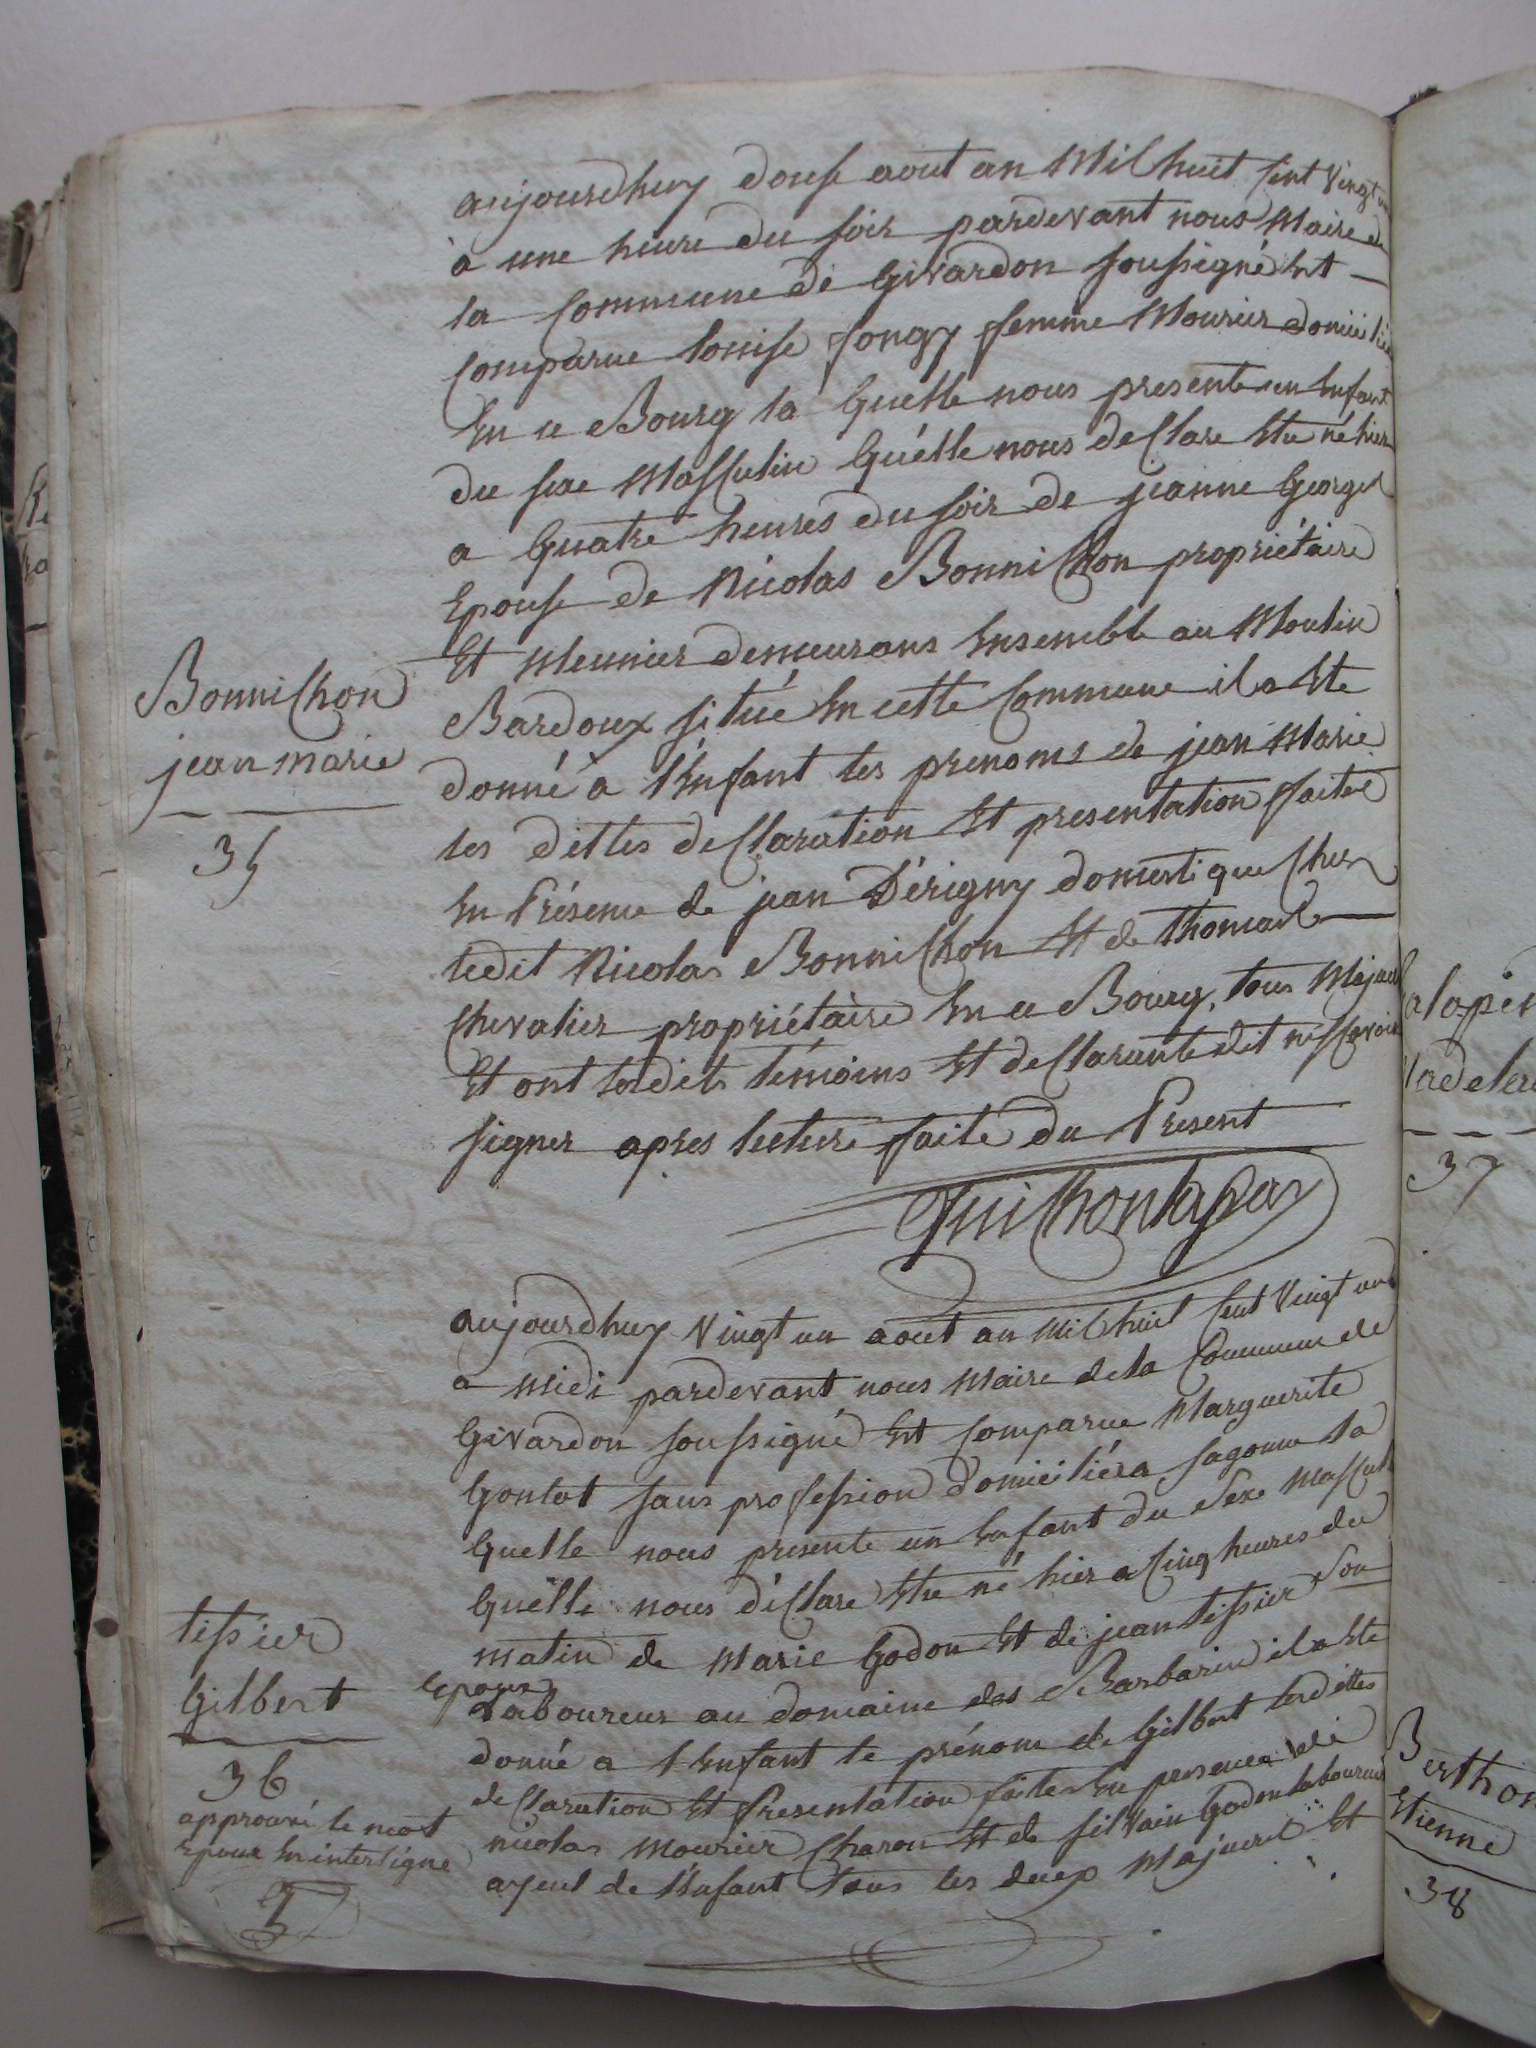 aujourdhuy douse aout an Mil huit Cent Vingt un
à une heure du soir pardevant nous Maire de
la Commune de Givardon soussigné Est
Comparue Louise Songy femme Mourier domicilié
En ce Bourg la quelle nous presente un Enfant
du sexe Masculin quélle nous declare Etre né hier
a quatre heures du soir de jeanne George
Epouse de Nicolas Bonnichon propriétaire
Et Meunier demeurans Ensemble au Moulin
Bardoux situé En cette Commune il a Ete
donné à l'Enfant les prenoms de jean Marie
les dittes declaration Et presentation faites
En Présence de jean Dérigny domestique Chez
ledit Nicolas Bonnichon Et de Thomas
Chevalier propriétaire En ce Bourg, tous Majeurs
Et ont lesdits témoins Et declarante dit ne scavoir
signer apres lecture faite du Present
Bonnichon
jean marie
35
aujourdhuy Vingt un aout an Mil huit Cent Vingt un
a Midi pardevant nous Maire de la Commune de
Givardon soussigné Est Comparue Marguerite
Gonlot sans profession domiciliée a Sagonne la
quelle nous presente un Enfant du Sexe Mascul
quélle nous déclare Etre né hier a Cinq heures du
matin de Marie Godon Et de jean tissier Son
Epoux
Laboureur au domaine des Barbarin il a Ete
donné a l'Enfant le prénom de Gilbert lesdittes
declaration Et Presentation faites En presence de
nicolas Mourier Charon Et de silvain Godon laboureur
ayeul de l'Enfant tous les deux Majeurs Et
tissier
Gilbert
36
approuvé le mot
Epoux En interligne
37
Berthon
Etienne
38